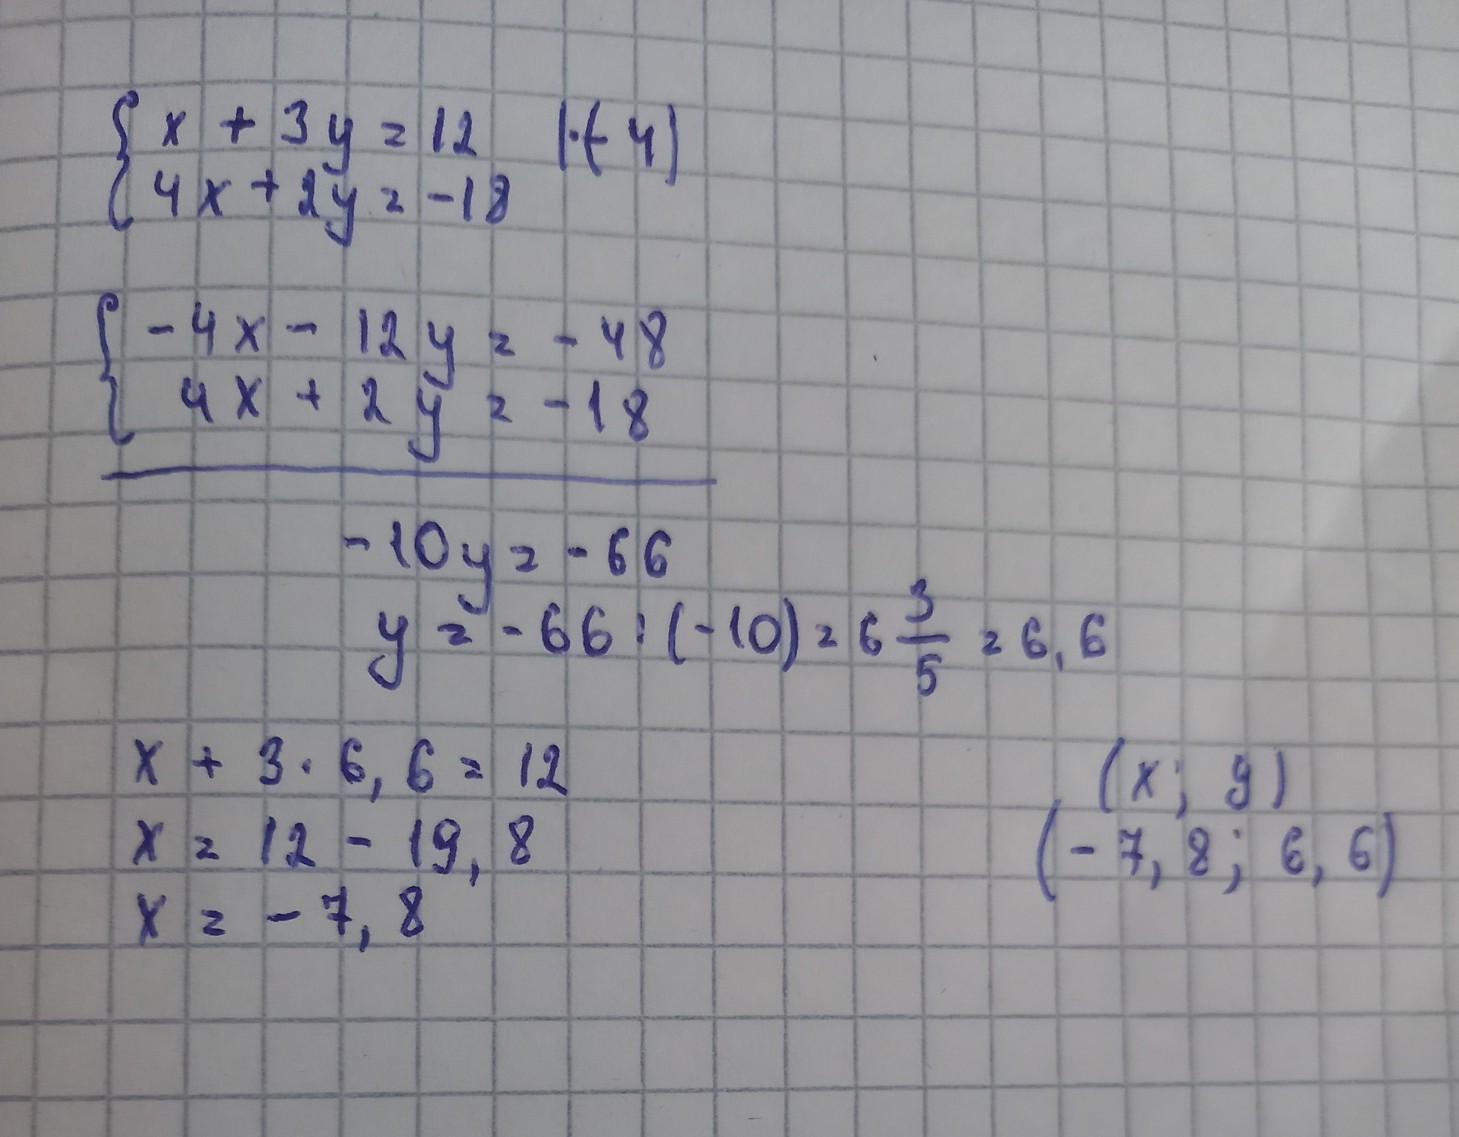 { x + 3y = 12 |·(-4)
4x + 2y = -18
{ -4x - 12y = -48
4x + 2y = -18
-10y = -66
y = -66 : (-10) = 6 3/5 = 6,6
x + 3·6,6 = 12
x = 12 - 19,8
x = -7,8
(x; y)
(-7,8; 6,6)